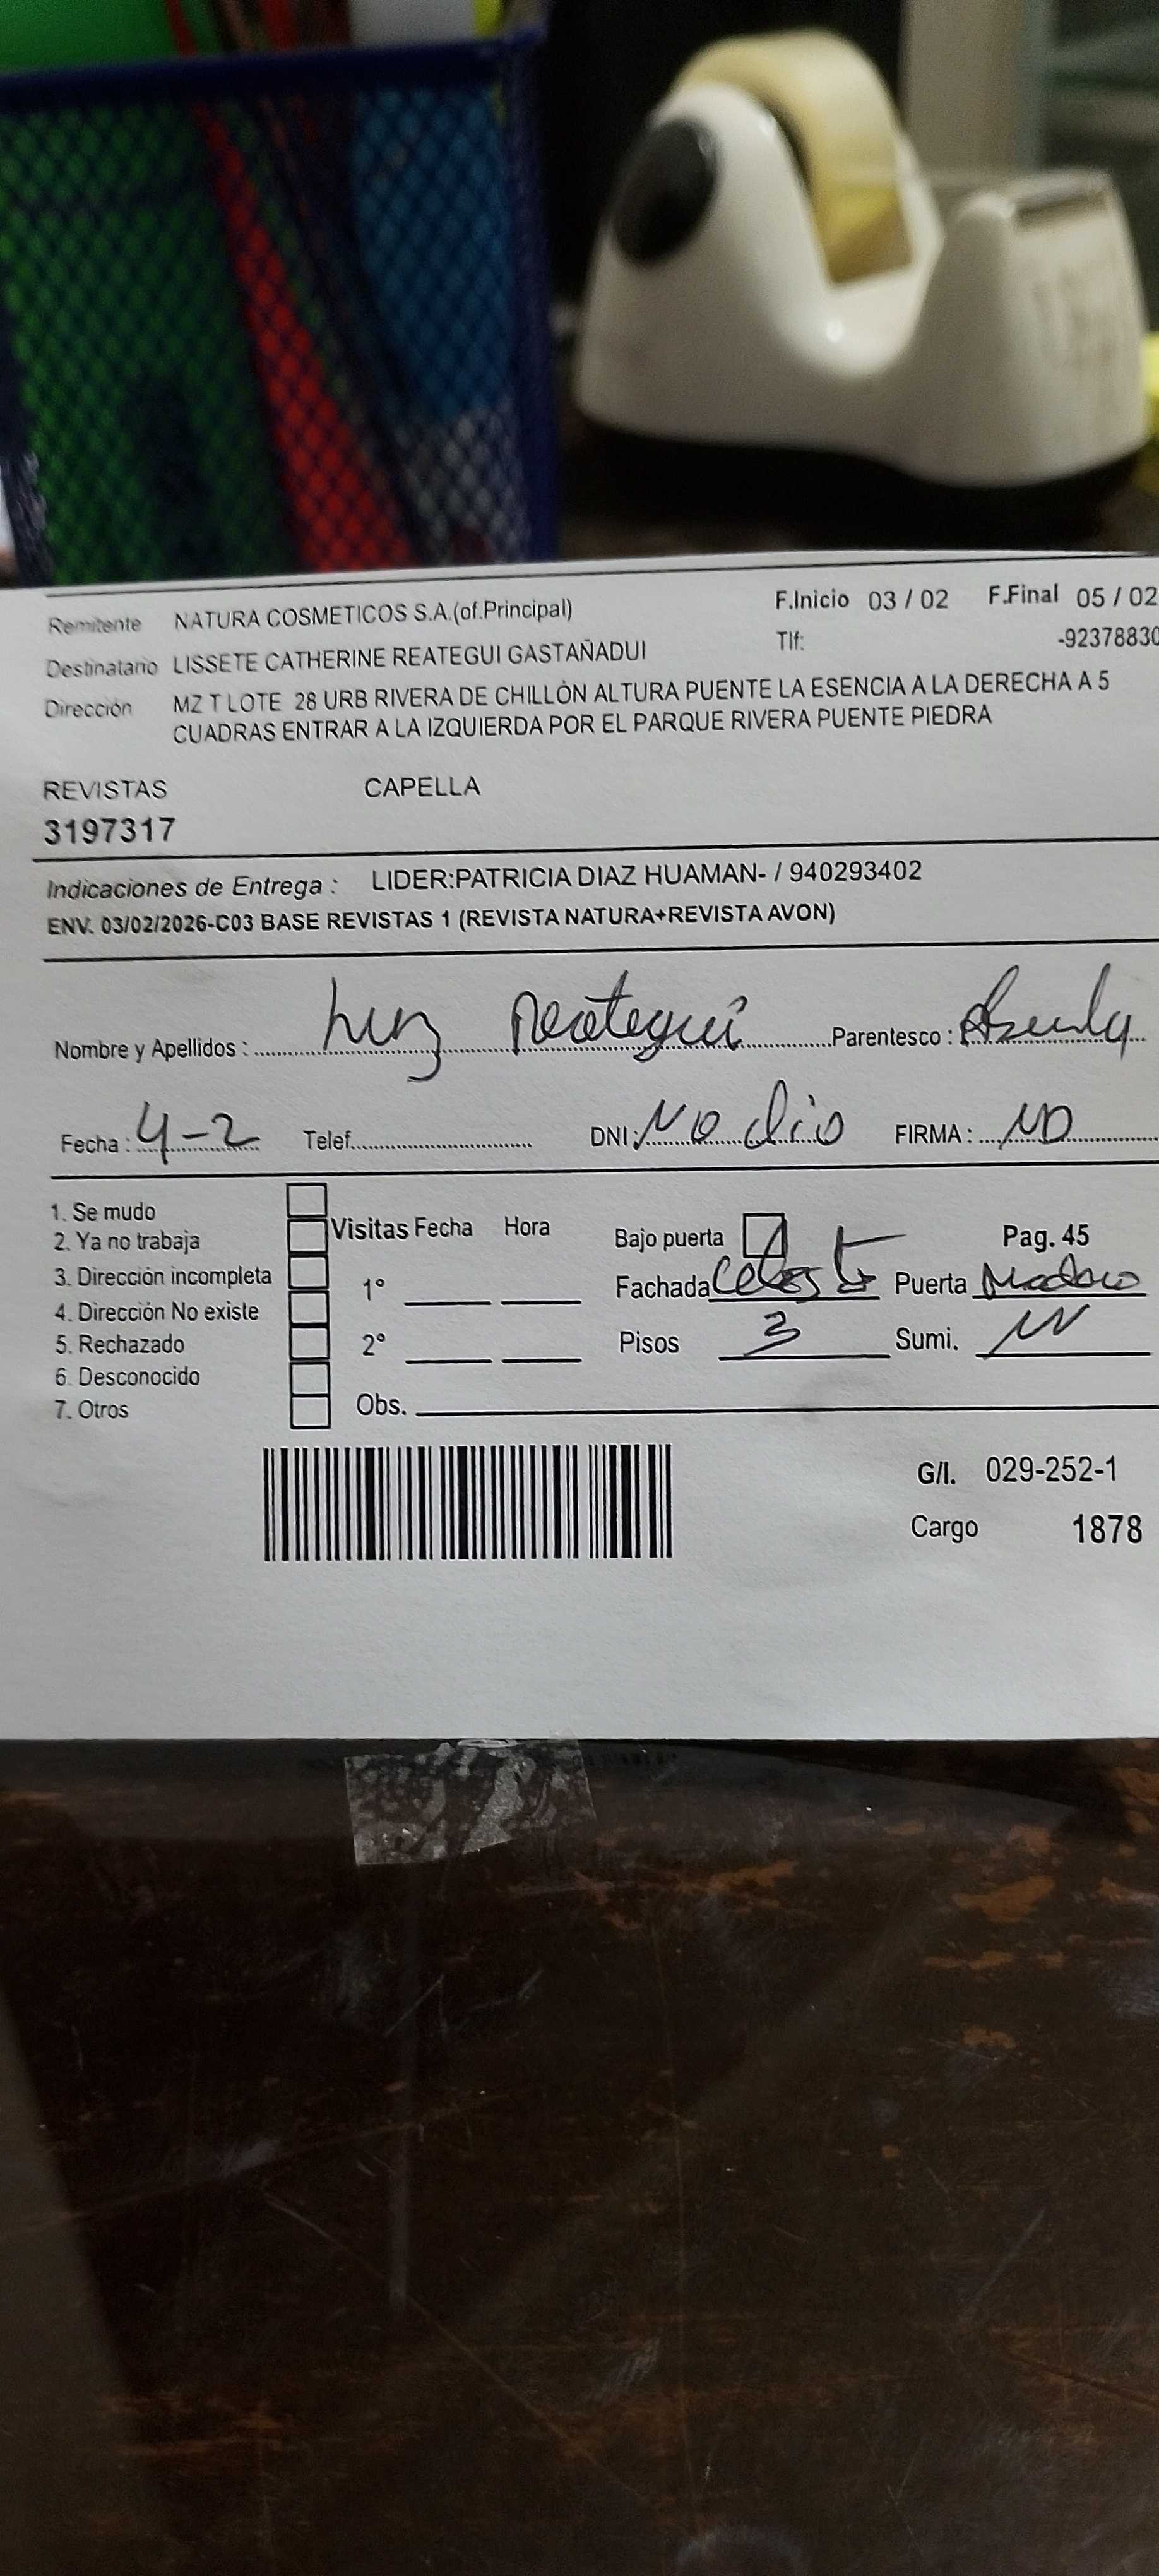 Remitente NATURA COSMETICOS S.A.(of.Principal) F.Inicio 03 / 02 F.Final 05 / 02
Tlf: -92378830
Destinatario LISSETE CATHERINE REATEGUI GASTAÑADUI
Dirección MZ T LOTE 28 URB RIVERA DE CHILLÓN ALTURA PUENTE LA ESENCIA A LA DERECHA A 5
CUADRAS ENTRAR A LA IZQUIERDA POR EL PARQUE RIVERA PUENTE PIEDRA
REVISTAS CAPELLA
3197317
Indicaciones de Entrega : LIDER:PATRICIA DIAZ HUAMAN- / 940293402
ENV. 03/02/2026-C03 BASE REVISTAS 1 (REVISTA NATURA+REVISTA AVON)
Nombre y Apellidos : Luz Reategui Parentesco :
Fecha : 4-2 Telef. DNI: NO dio FIRMA : ND
1. Se mudo
2. Ya no trabaja
3. Dirección incompleta
4. Dirección No existe
5. Rechazado
6. Desconocido
7. Otros
Visitas Fecha Hora
1°
2°
Obs.
Bajo puerta Pag. 45
Fachada Celeste Puerta
Pisos 3 Sumi.
G/I. 029-252-1
Cargo 1878